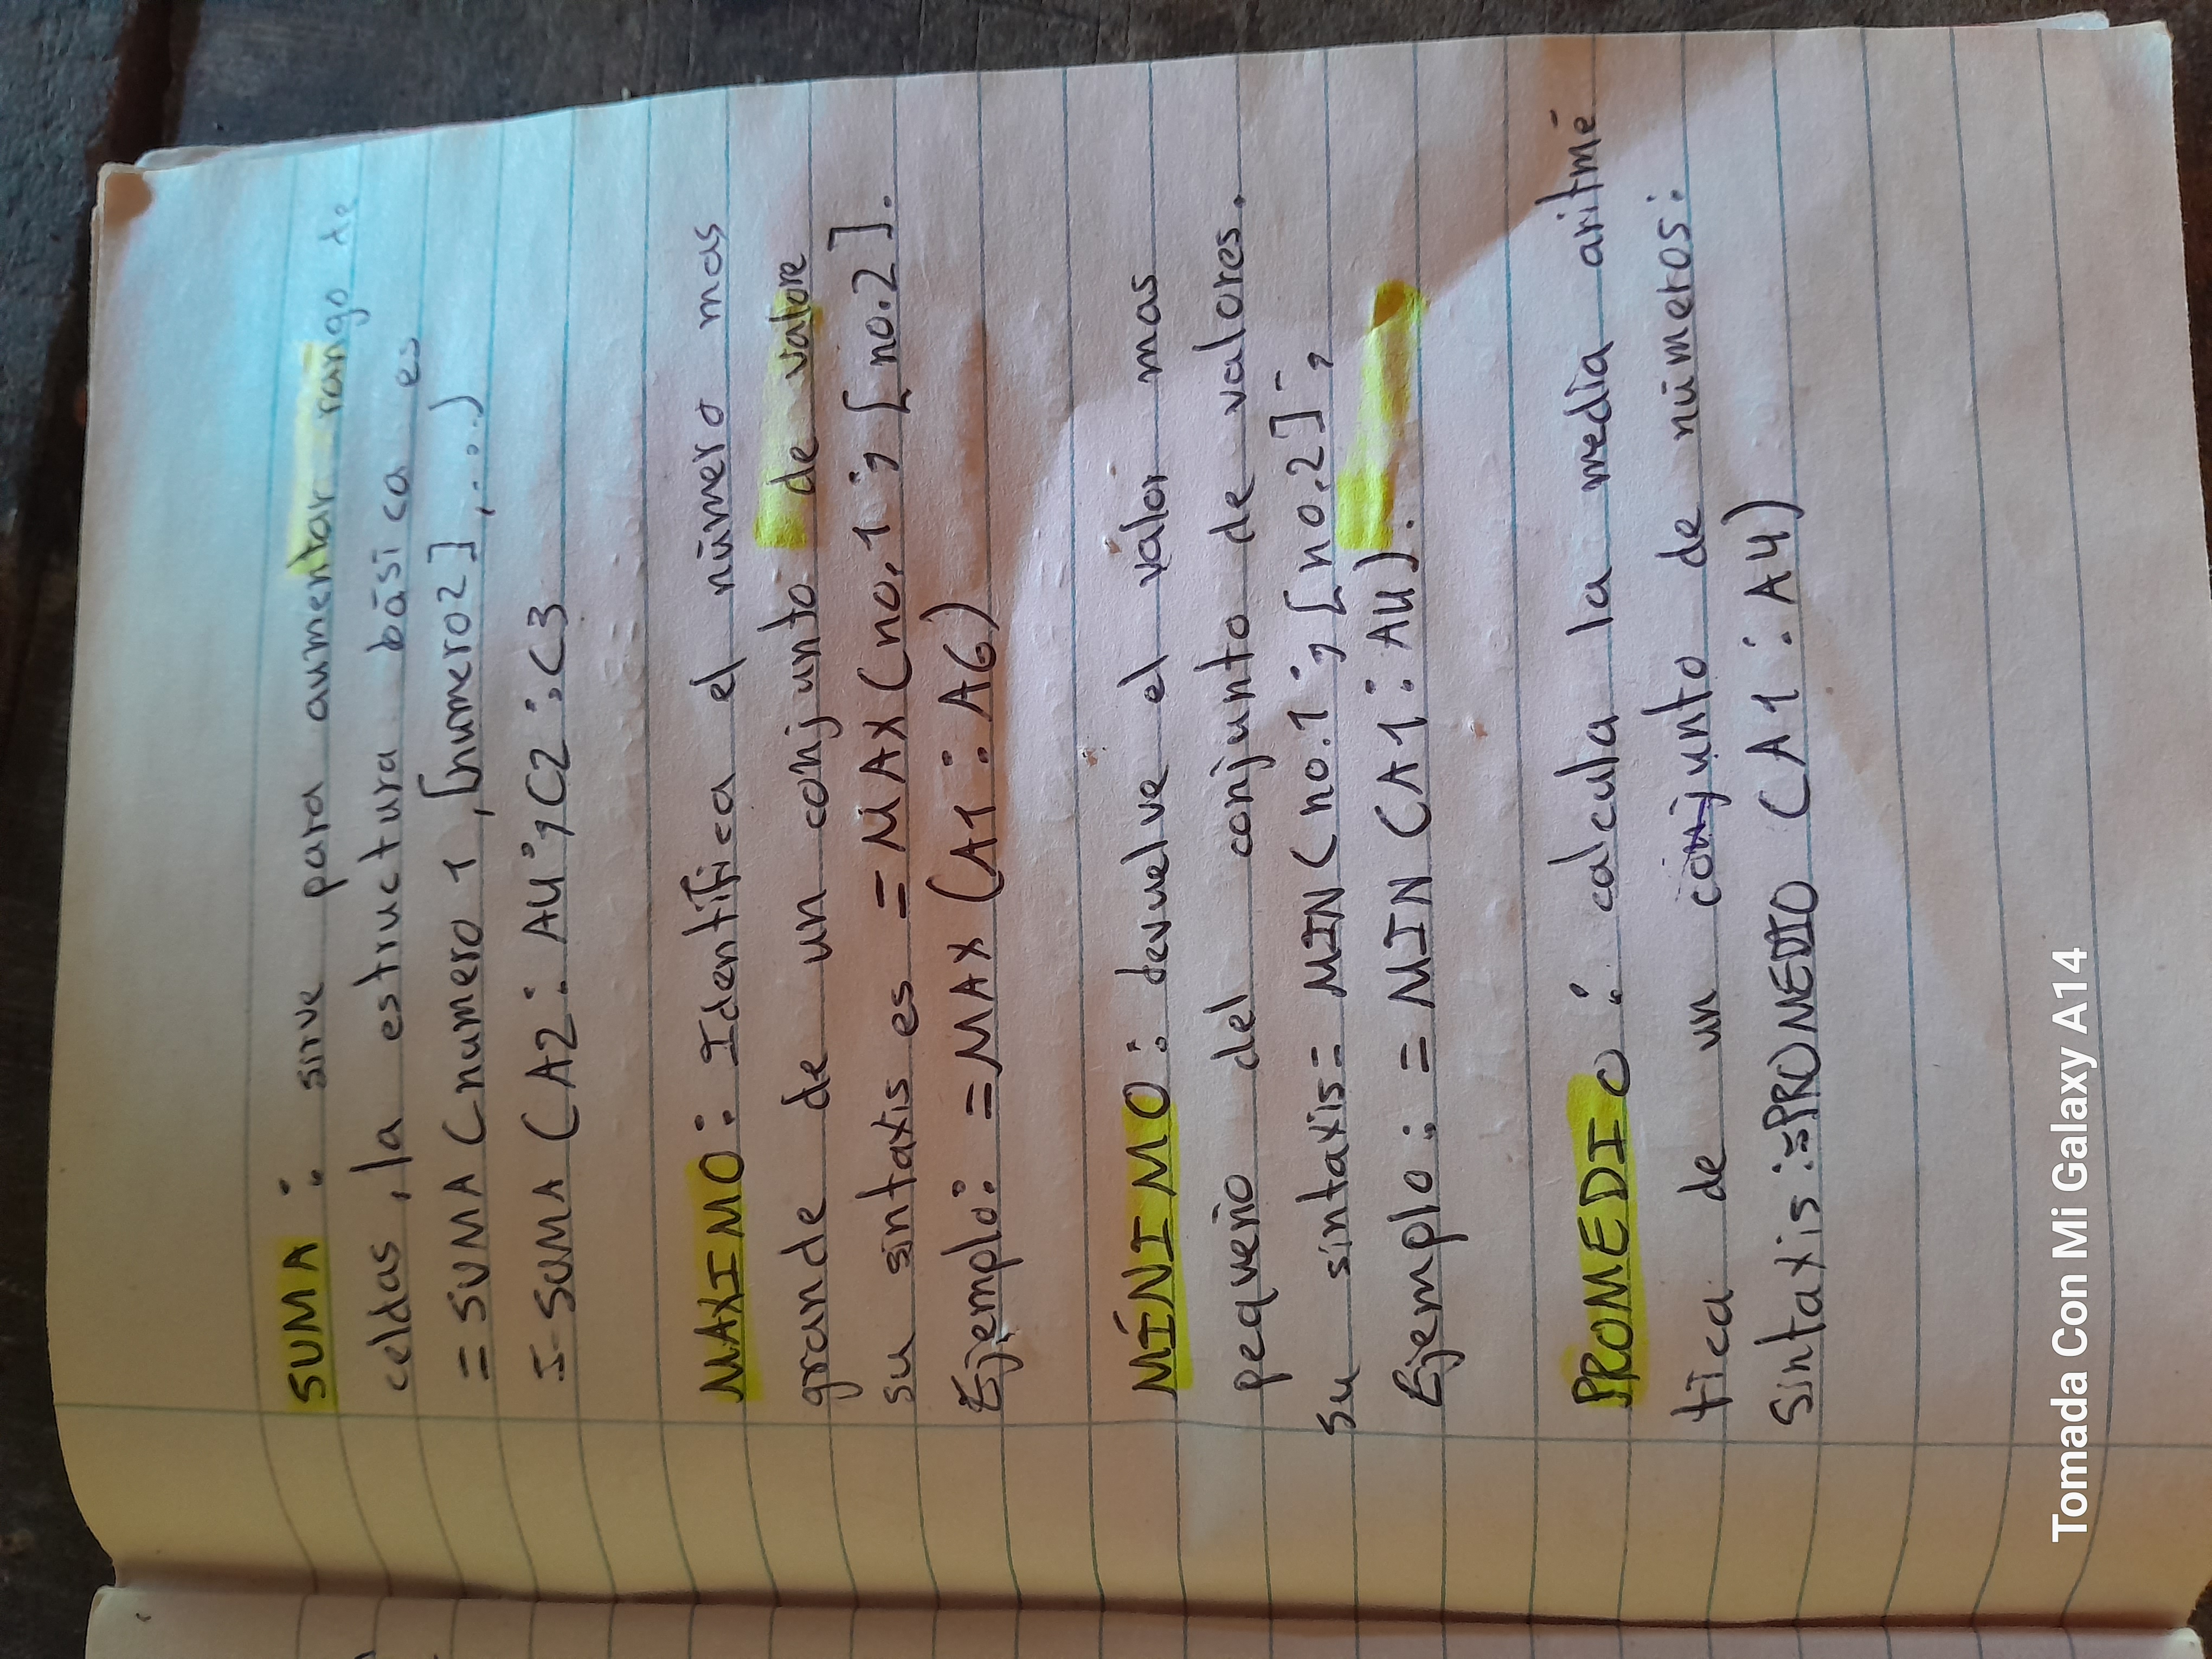 SUMA: sirve para aumentar rango de
celdas, la estructura básica es
=SUMA (numero 1, [numero2], ...)
I-SUMA (A2: A4; C2: C3
MAXIMO: Identifica el número mas
grande de un conjunto de valore
su sintaxis es =MAX (no.1; [no.2].
Ejemplo: =MAX (A1: A6)
MÍNIMO: devuelve el valor mas
pequeño del conjunto de valores.
su sintaxis= MIN (no.1; [no.2];
Ejemplo: =MIN (A1: A4).
PROMEDIO: calcula la media aritmé
tica de un conjunto de números:
Sintaxis: =PROMEDIO (A1: A4)
Tomada Con Mi Galaxy A14